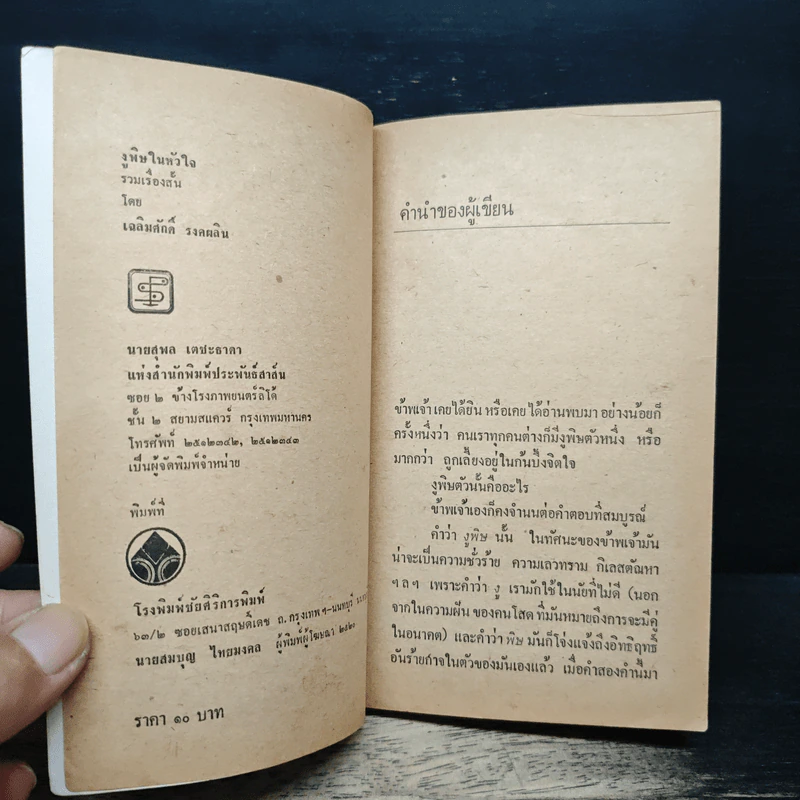 งูพิษในหัวใจ
รวมเรื่องสั้น
โดย
เฉลิมศักดิ์ รงคผลิน
นายสุพล เตชะธาดา
แห่งสำนักพิมพ์ประพันธ์สาส์น
ซอย ๒ ข้างโรงภาพยนตร์ลิโด้
ชั้น ๒ สยามสแควร์ กรุงเทพมหานคร
โทรศัพท์ ๒๕๑๒๓๔๒, ๒๕๑๒๓๔๓
เป็นผู้จัดพิมพ์จำหน่าย
พิมพ์ที่
โรงพิมพ์ชัยศิริการพิมพ์
๖๓/๒ ซอยเสนาสฤษดิ์เดช ถ.กรุงเทพฯ-นนทบุรี
นายสมบุญ ไทยมงคล ผู้พิมพ์ผู้โฆษณา ๒๕๒๐
ราคา ๑๐ บาท
คำนำของผู้เขียน
ข้าพเจ้าเคยได้ยิน หรือเคยได้อ่านพบมา อย่างน้อยก็
ครั้งหนึ่งว่า คนเราทุกคนต่างก็มีงูพิษตัวหนึ่ง หรือ
มากกว่า ถูกเลี้ยงอยู่ในก้นบึ้งจิตใจ
งูพิษตัวนั้นคืออะไร
ข้าพเจ้าเองก็คงจำนนต่อคำตอบที่สมบูรณ์
คำว่า งูพิษ นั้น ในทัศนะของข้าพเจ้ามัน
น่าจะเป็นความชั่วร้าย ความเลวทราม กิเลสตัณหา
ฯลฯ เพราะคำว่า งู เรามักใช้ในนัยที่ไม่ดี (นอก
จากในความฝัน ของคนโสด ที่มันหมายถึงการจะมีคู่
ในอนาคต) และคำว่า พิษ มันก็โจ่งแจ้งถึงอิทธิฤทธิ์
อันร้ายกาจในตัวของมันเองแล้ว เมื่อคำสองคำนี้มา